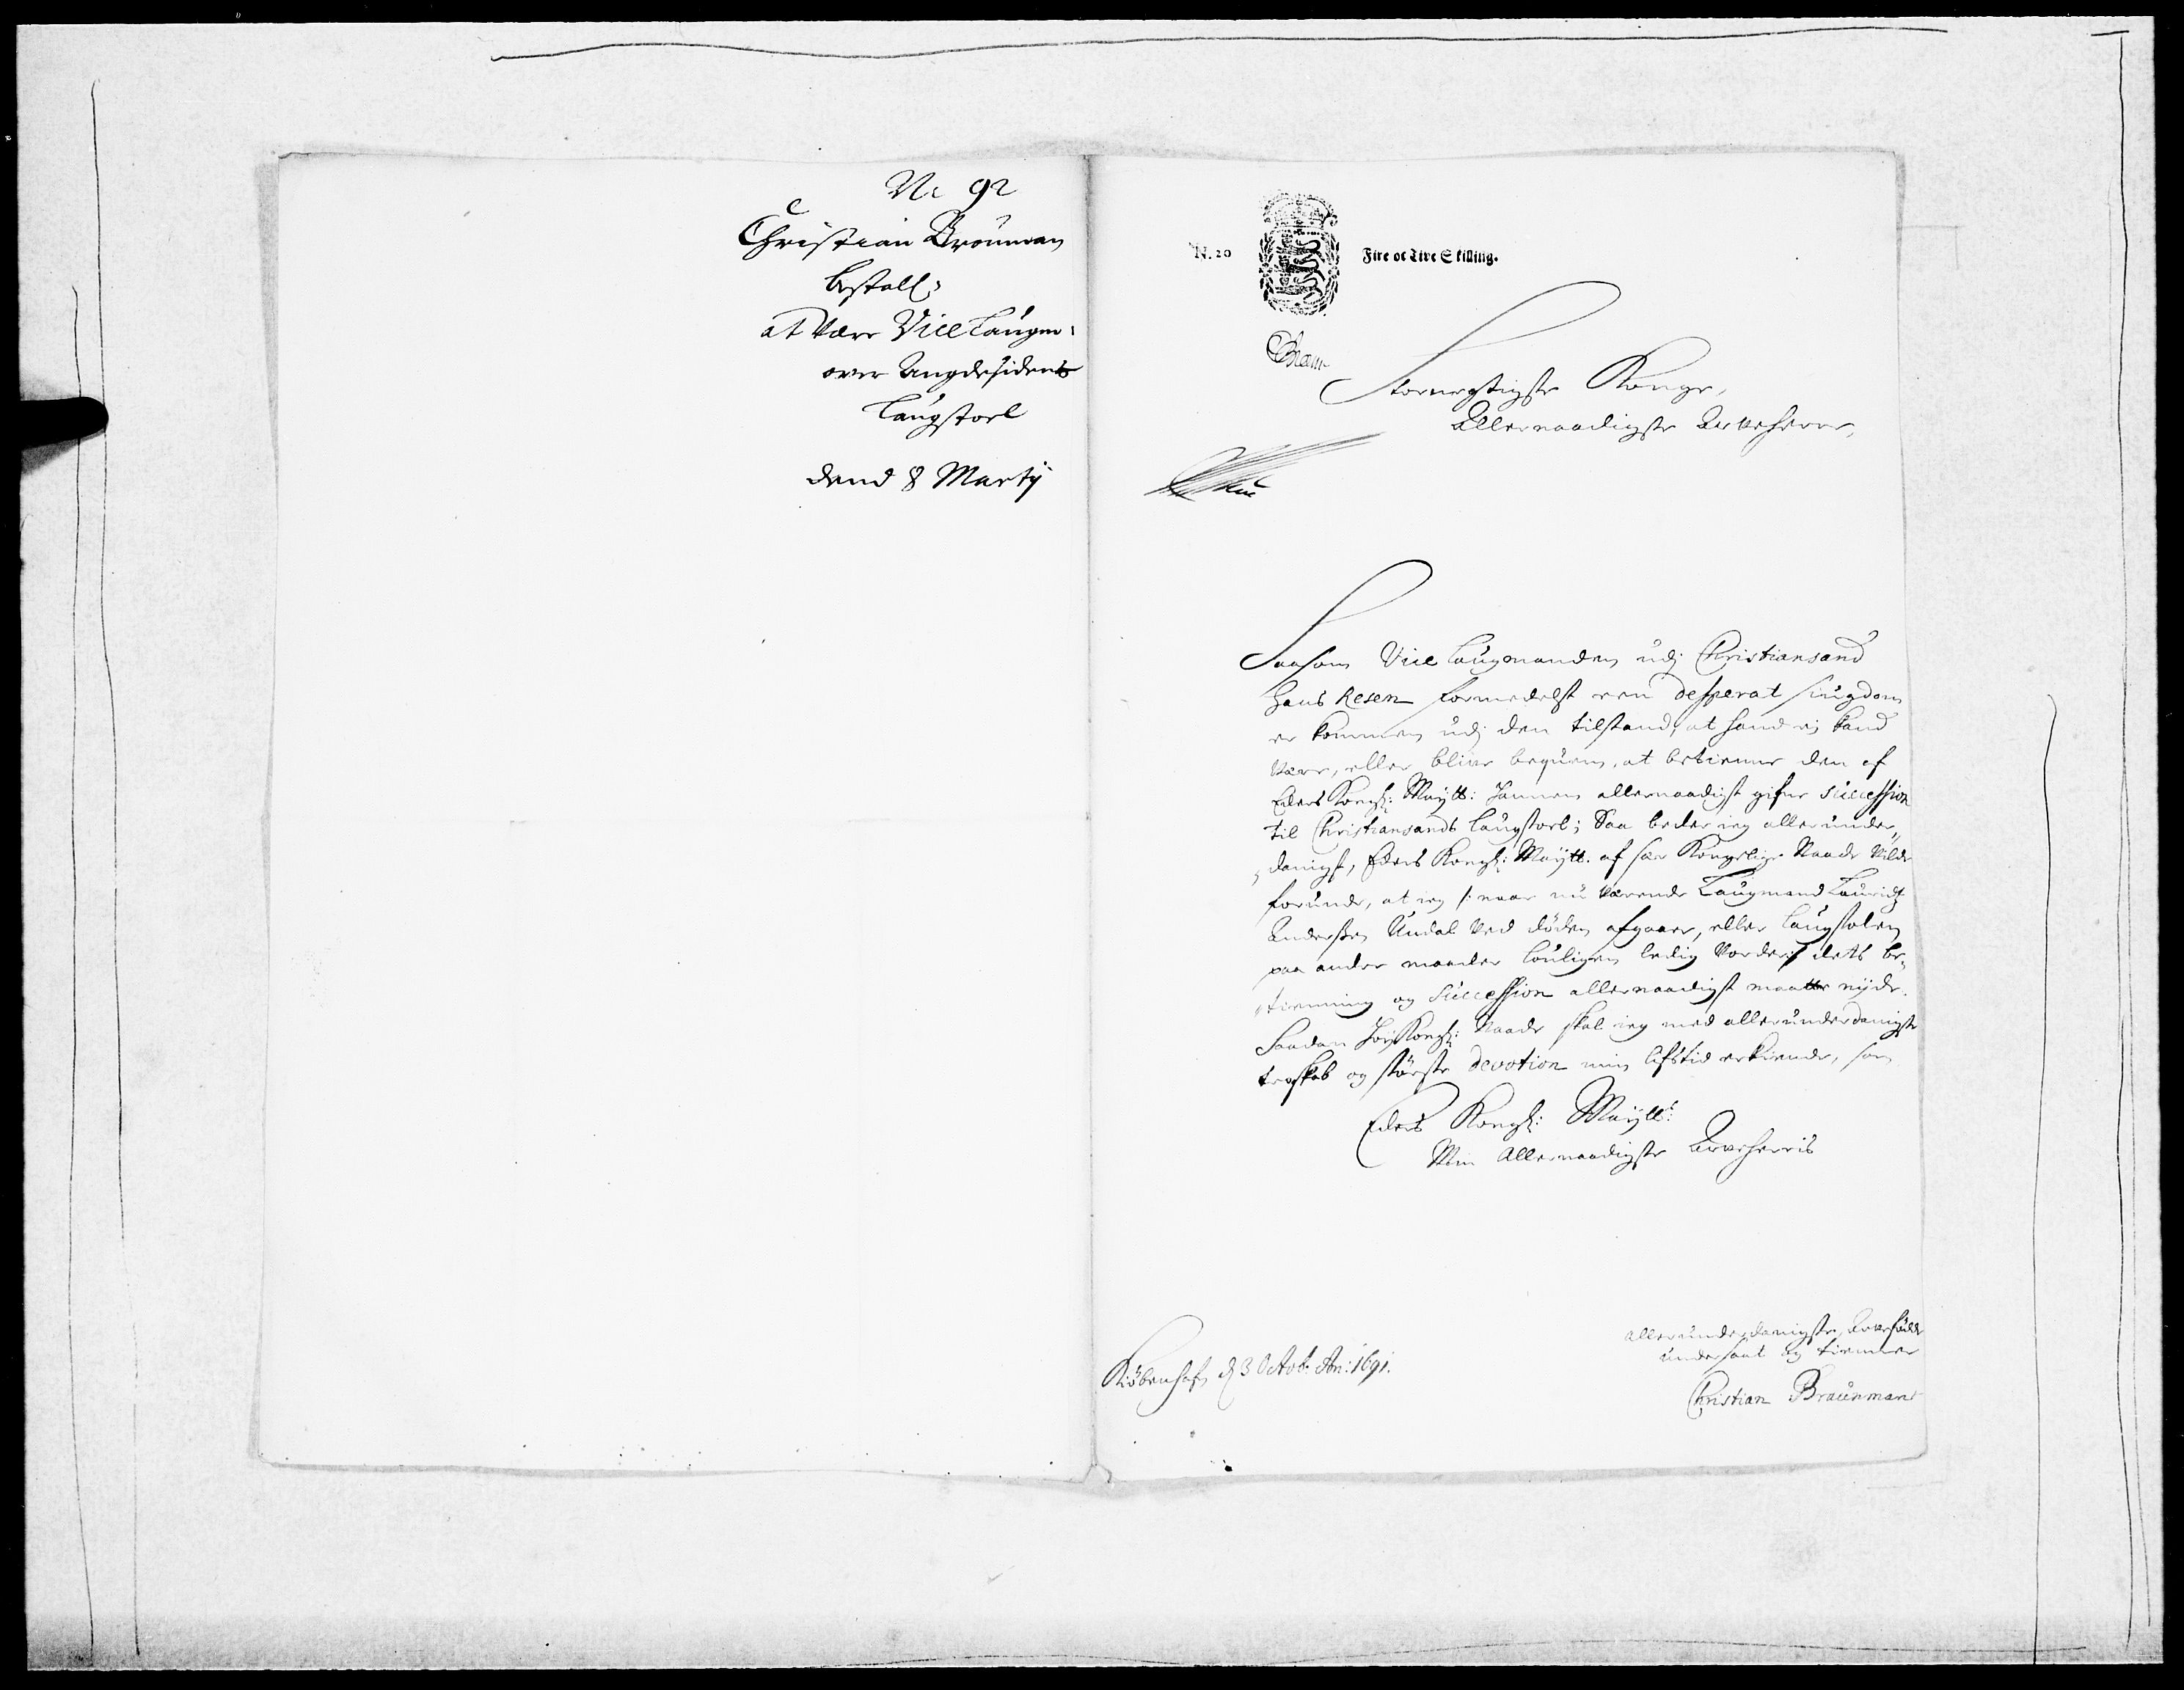 No 92
Christian Brounman
bestall:
at være Vice Laugm:
over Angdesidens
Laugstoel
dend 8 Martij
N. 20
Fire oc Tive Skilling.
Stormegtigste Konge,
Allernaadigste Arveherre,
Saasom Vice Laugmanden udj Christiansand
Hans Resen formedelst een desperat siugdom
er kommen udj den tilstand, at hand ej kand
være, eller blive beqvem, at betienne den af
Eders Kongl: Maytt: hannem allernaadigst gifne succession
til Christiansands Laugstoel; Saa beder ieg allerunder,,
,,danigst, Eders Kongl: Maytt: af sær Kongelige Naade Vilde
forunde, at ieg /: naar nu værende Laugmand Lauridtz
Anderssen Undal ved döden afgaaer, eller Laugstolen
paa andre maader louligen ledig vorder:/ dets be,,
,,tienning og Succession allernaadigst maatte nyde.
Saadan høy Kongl: Naade skal ieg med allerunderdanigste
troskab og störste devotion min lifstid erkiende, som
Eders Kongl: Maytts:
Min Allernaadigste Arveherris
allerunderdanigste, Arvefödde
undersaat og tienner
Christian Braunman
Kiöbenhafn d 3 Octob: An: 1691.